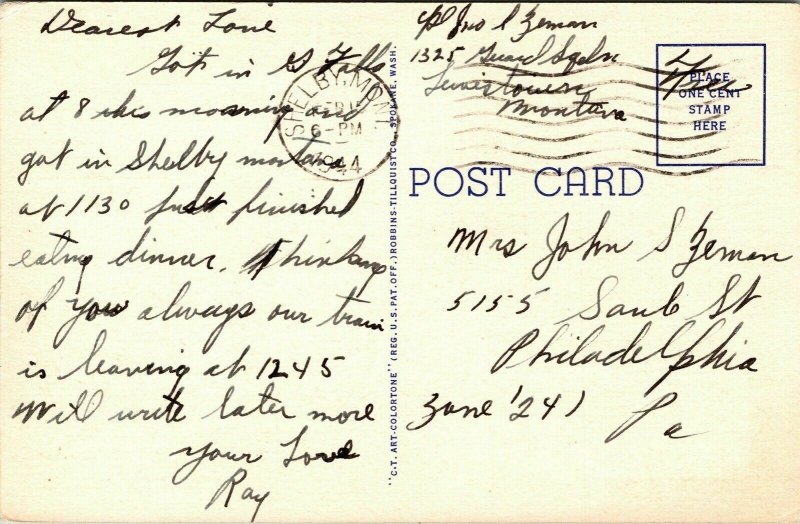 Dearest Love
Got in G Falls
at 8 this morning and
got in Shelby montana
at 1130 just finished
eating dinner. Thinking
of you always our train
is leaving at 1245
Will write later more
your Love
Ray
SHELBY, MONT.
6-PM
1944
"C.T. ART-COLORTONE" (REG. U.S. PAT. OFF.) ROBBINS-TILLQUIST CO., SPOKANE, WASH.
Jno S Zeman
1325 Guard Sqdn
Lewistown
Montana
Free
PLACE
ONE CENT
STAMP
HERE
POST CARD
Mrs John S Zeman
5155 St
Philadelphia
Zone '24' Pa